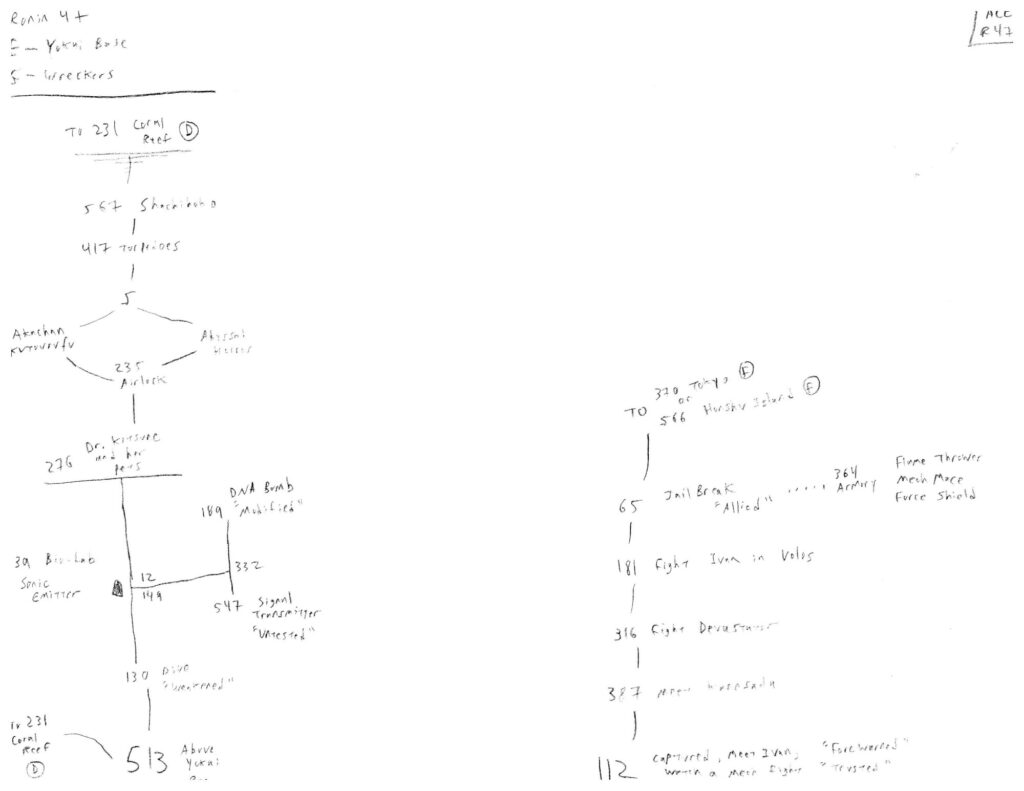 Ronin 47
E - Yokai Base
F - Wreckers
ACE
R47
To 231 Coral
Reef D
567 Shachihoko
417 Torpedoes
5
Akachan
Abyssal
Horror
235
Airlock
276 Dr. Kitsune
and her
pets
DNA Bomb
189 "Modified"
39 Bio-Lab
Sonic
Emitter
12
149
332
547 Signal
Transmitter
"Untested"
130 Dive
"Weakened"
To 231
Coral
Reef
D
513 Above
Yokai
To 370 Tokyo F
or
566 Honshu Island F
65 Jail Break
"Allied"
364
Armory
Flame Thrower
Mech Mace
Force Shield
181 Fight Ivan in Volos
316 Fight Devastator
387 Meet
112 Captured, Meet Ivan, "Forewarned"
watch a mech fight "Trusted"